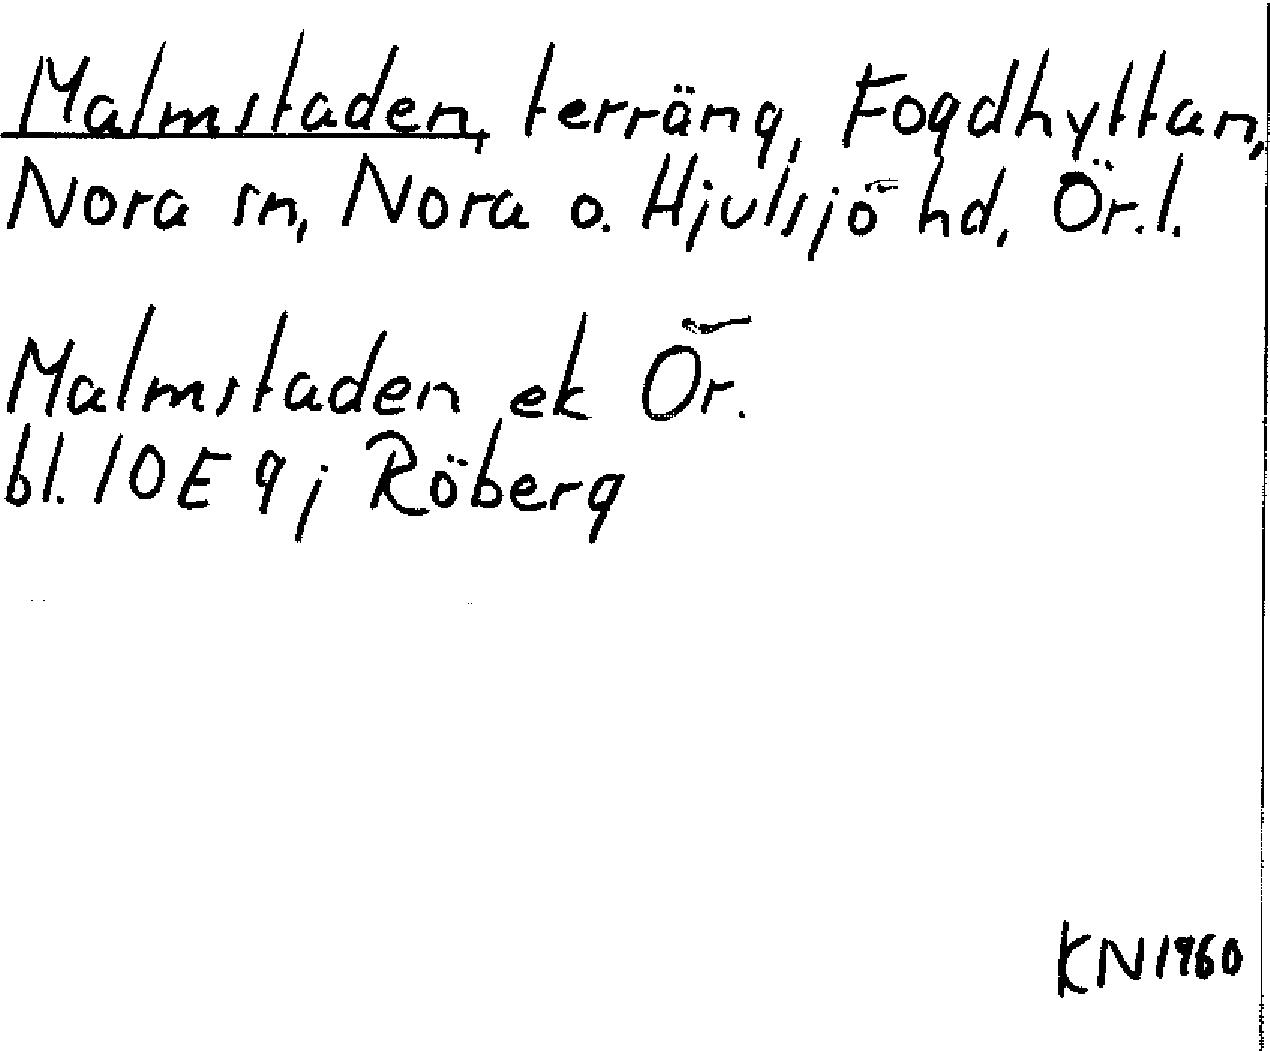 Malmstaden, terräng, Fogdhyttan,
Nora sn, Nora o. Hjulsjö hd, Ör.l.
Malmstaden ek Ör.
bl. 10E 9j Röberg
KN1960